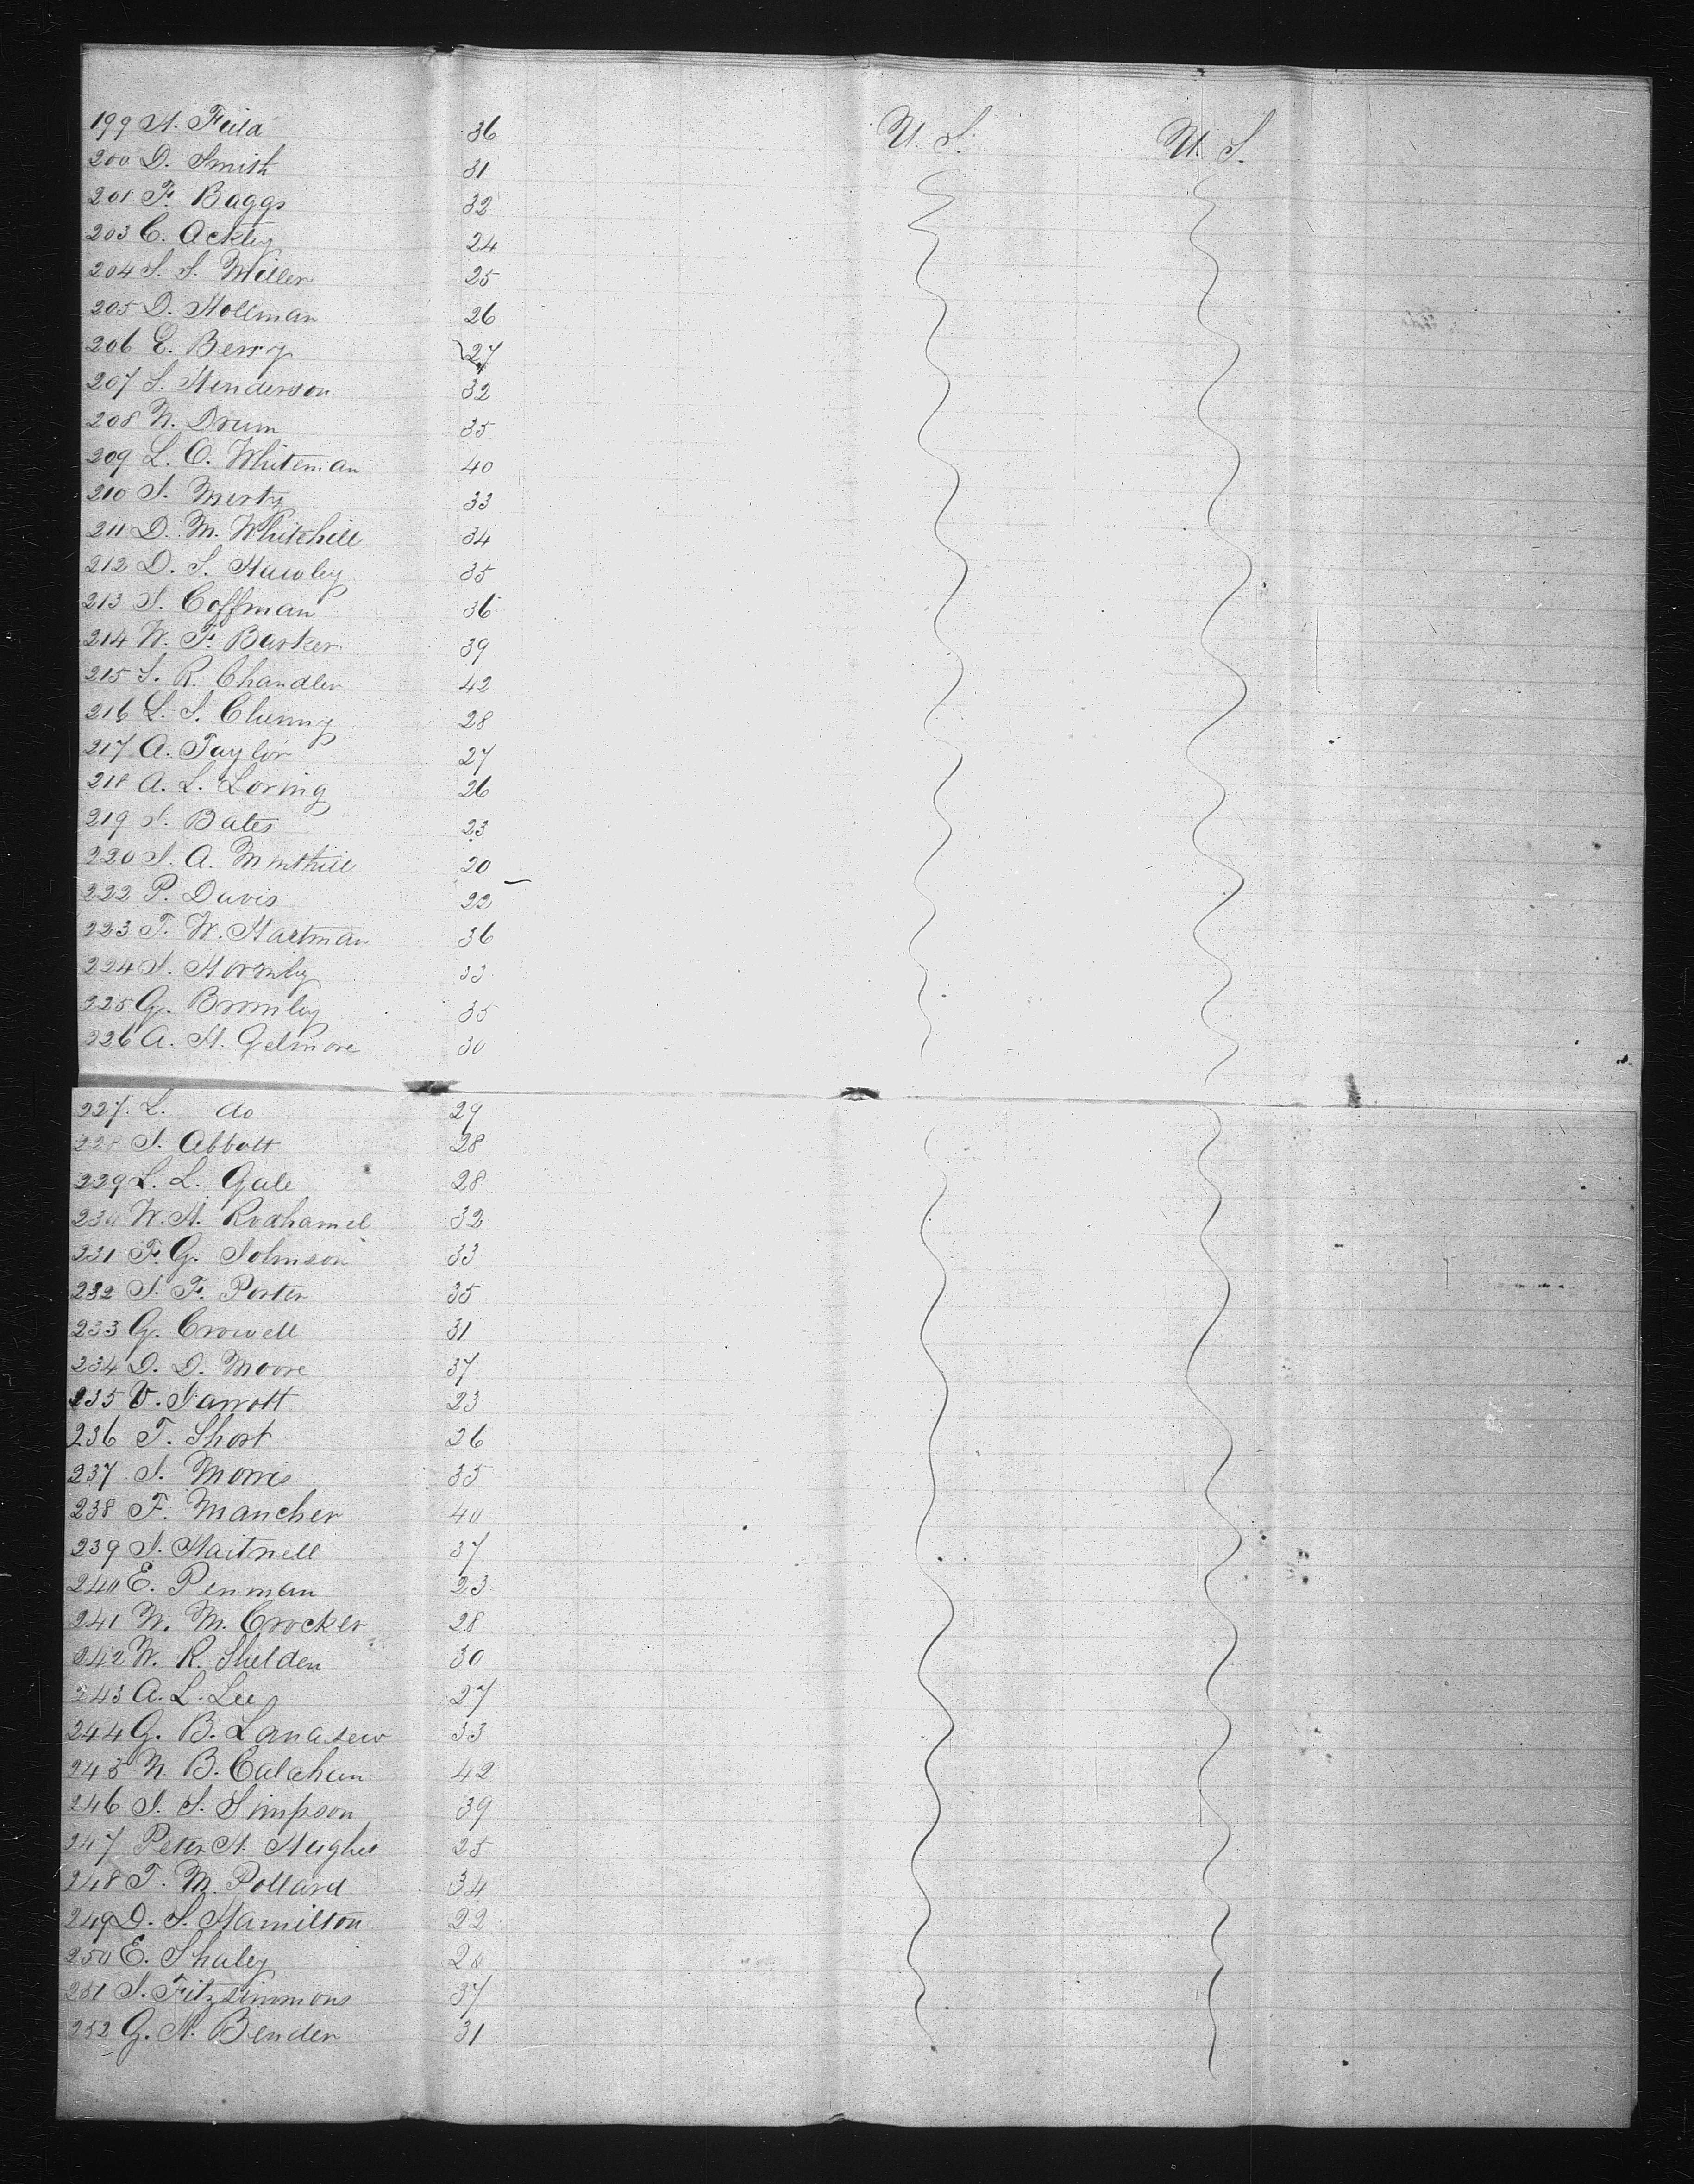 199 H. Field 36 U. S. U. S.
200 D. Smith 31
201 F. Baggs 32
203 C. Ackley 24
204 S. S. Miller 25
205 D. Hollman 26
206 E. Berry 27
207 S. Henderson 32
208 N. Drum 35
209 L. O. Whiteman 40
210 S. Mertz 33
211 D. M. Whitehill 34
212 D. S. Hawley 35
213 S. Coffman 36
214 W. F. Barker 39
215 S. R. Chandler 42
216 L. S. Clunny 28
217 A. Taylor 27
218 A. L. Loring 26
219 S. Bates 23
220 S. A. 20
222 P. Davis 22
223 T. W. Hartman 36
224 S. Hornby 33
225 G. Bromley 35
226 A. H. Gelmore 30
227. L. do 29
228 S. Abbott 28
229 L. L. Gale 28
230 W. H. Rodhamel 32
231 F. G. Johnson 33
232 S. F. Porter 35
233 G. Crowell 31
234 D. D. Moore 37
235 V. 23
236 T. Short 26
237. S. Morris 35
238 F. Mancher 40
239 S. Hartnell 37
240 E. Penman 23
241 W. M. Crocker 28
242 W. R. Shelden 30
243 A. L. Lee 27
244 G. B. 33
245 N. B. Calahan 42
246 S. S. Simpson 39
247 Peter H. Hughes 25
248 T. M. Pollard 34
249 D. S. Hamilton 22
250 E. Shaley 20
251 S. Fitzsimmons 37
252 G. H. Bender 31